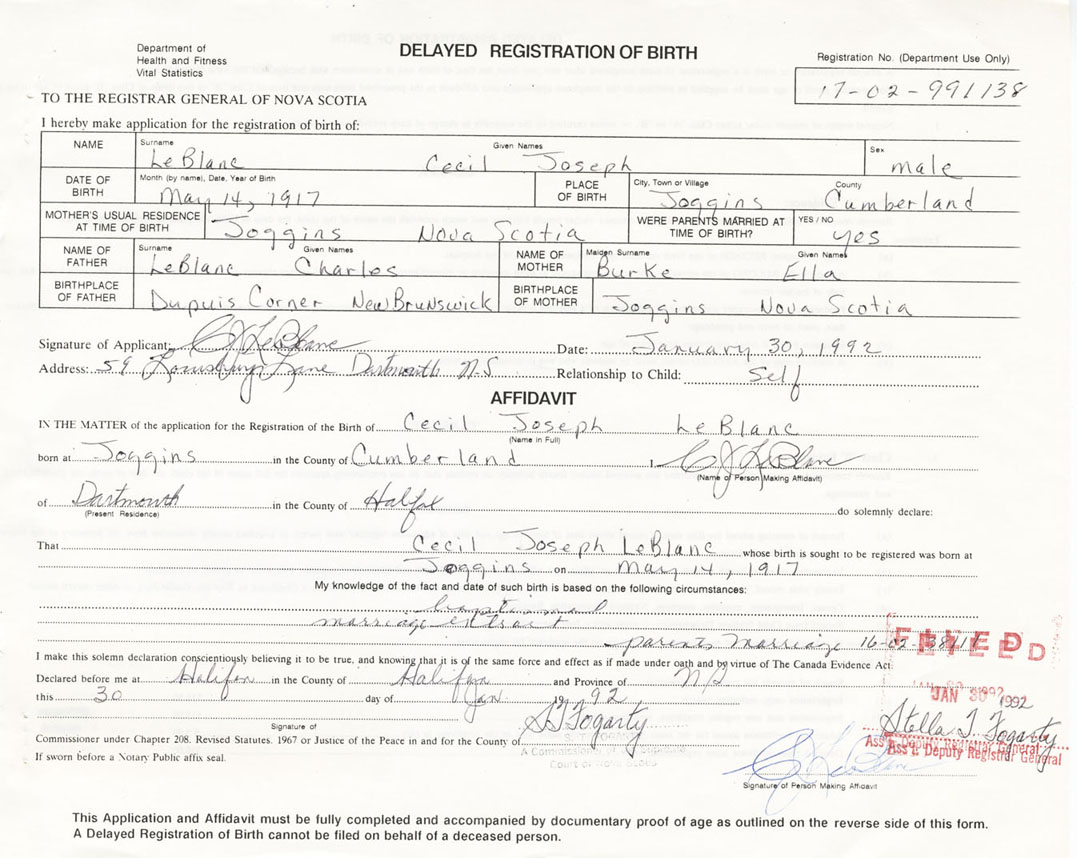 Department of
Health and Fitness
Vital Statistics
DELAYED REGISTRATION OF BIRTH
Registration No. (Department Use Only)
17-02-991138
TO THE REGISTRAR GENERAL OF NOVA SCOTIA
I hereby make application for the registration of birth of:
NAME Surname Given Names Sex
LeBlanc Cecil Joseph male
DATE OF BIRTH Month (by name), Date, Year of Birth PLACE OF BIRTH City, Town or Village County
May 14, 1917 Joggins Cumberland
MOTHER'S USUAL RESIDENCE AT TIME OF BIRTH Joggins Nova Scotia WERE PARENTS MARRIED AT TIME OF BIRTH? YES / NO yes
NAME OF FATHER Surname Given Names NAME OF MOTHER Maiden Surname Given Names
LeBlanc Charles Burke Ella
BIRTHPLACE OF FATHER Dupuis Corner New Brunswick BIRTHPLACE OF MOTHER Joggins Nova Scotia
Signature of Applicant: CJ LeBlanc Date: January 30, 1992
Address: 59 Lane Dartmouth N.S Relationship to Child: Self
AFFIDAVIT
IN THE MATTER of the application for the Registration of the Birth of Cecil Joseph LeBlanc
(Name in Full)
born at Joggins in the County of Cumberland I, CJ LeBlanc
(Name of Person Making Affidavit)
of Dartmouth in the County of Halifax do solemnly declare:
(Present Residence)
That Cecil Joseph LeBlanc whose birth is sought to be registered was born at
Joggins on May 14, 1917
My knowledge of the fact and date of such birth is based on the following circumstances:
baptismal
marriage extract
parents marriage 16-02-
FILED
I make this solemn declaration conscientiously believing it to be true, and knowing that it is of the same force and effect as if made under oath and by virtue of The Canada Evidence Act.
Declared before me at Halifax in the County of Halifax and Province of NS
this 30 day of Jan 1992
JAN 30 1992
Signature of S Fogarty
Stella Fogarty
Commissioner under Chapter 208. Revised Statutes. 1967 or Justice of the Peace in and for the County of
Ass't. Deputy Registrar General
If sworn before a Notary Public affix seal.
CJ LeBlanc
Signature of Person Making Affidavit
This Application and Affidavit must be fully completed and accompanied by documentary proof of age as outlined on the reverse side of this form.
A Delayed Registration of Birth cannot be filed on behalf of a deceased person.